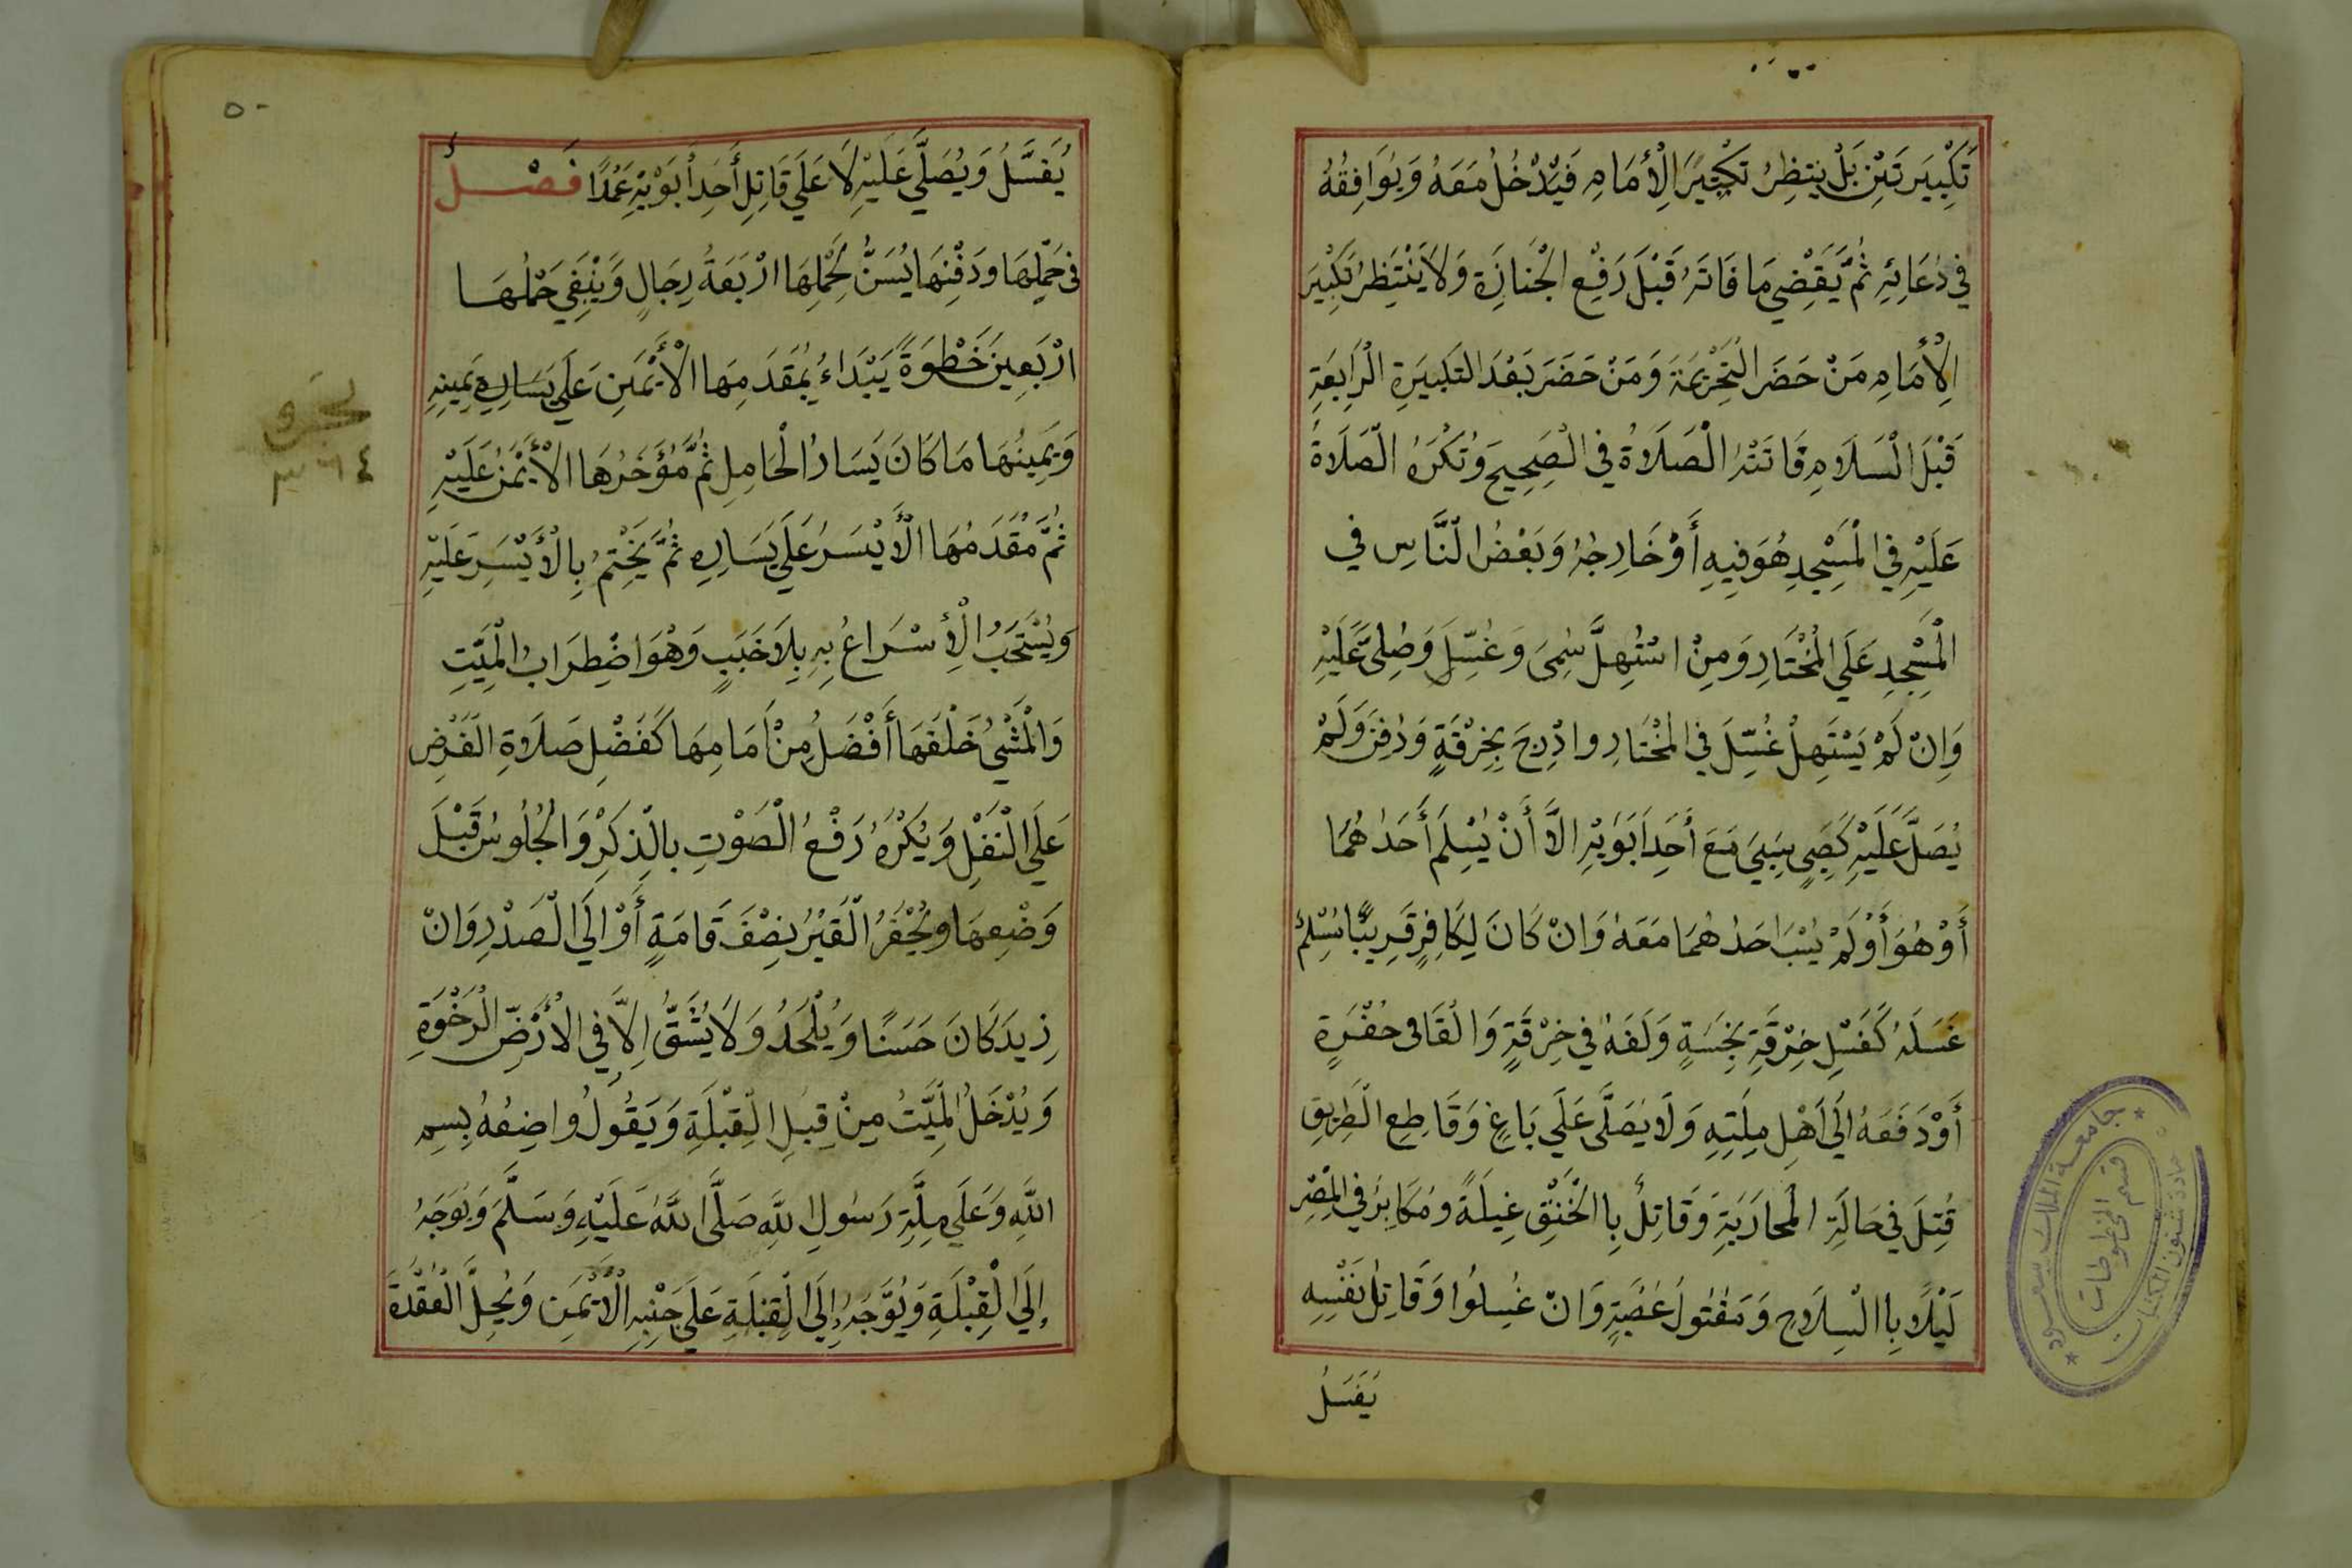 تَكْبِيرَتَيْنِ بَلْ يَنتظِرُ تكْبِيرَ الْأَمَامِ فَيَدْخُلُ مَعَهُ وَيُوَافِقُهُ
فِي دُعَائِهِ ثُمَّ يَقْضِي مَا فَاتَهُ قَبْلَ رَفْعِ الْجَنازَةِ وَلَا يَنْتَظِرُ تَكْبِيرَ
الْأَمَامِ مَنْ حَضَرَ التَّحْرِيْمَةَ وَمَنْ حَضَرَ بَعْدَ التَكبِيرَةِ الرَّابِعَةِ
قَبْلَ السَلَامِ فَاتَتْهُ الصَلَاةُ فِي الصَحِيحِ وَتُكْرَهُ الصَلَاةُ
عَلَيْهِ فِي الْمَسْجِدِ هُوَ فِيهِ أَوْ خَارِجُهُ وَبَعْضُ النَّاسِ في
الْمَسْجِدِ عَلَي الْمُخْتَارِ وَمِنْ اسْتُهِلَّ سُمِىَ وَغُسِّلَ وَصُلِىَّ عَلَيْهِ
وَاِنْ لَمْ يَسْتَهِلْ غُسِّلَ فِي المُخْتَارِ وادْرِجَ بِخِرْقَةٍ وَدُفِنَ وَلَمْ
يُصَلَّ عَلَيْهِ كَصَبِيٍ سُبِيَ مَعَ أَحَدِ اَبَوَيْهِ الاَّ أَنْ يُسْلِمَ أَحَدُهُمَا
أَوْ هُوَ أَوْ لَمْ يُسْبَ احَدُهُمَا مَعَهُ وَانْ كَانَ لِكَافِرٍ قَرِيبٌ مُسْلِمٌ
غَسَلَهُ كَغَسْلِ خِرْقَةٍ نَجِسَةٍ وَلَفَهُ فِي خِرْقَةٍ وَالْقَاه فى حُفْرَةٍ
أَوْ دَفَعَهُ اِلَي اَهْلِ مِلَتِهِ وَلَا يُصَلَّى عَلَي بَاغٍ وَقَاطِعِ الطَّرِيقِ
قُتِلَ فِي حَالَةِ المُحَارَبَةِ وَقَاتِلٌ بِاالْخَنْقِ غِيلَةً وَمُكَابِرٌ فِي المِصْرِ
لَيْلًا بِاالسِلَاحِ وَمَقْتُولُ عَصَبِيَةٍ وَانْ غُسِلُوا وَقَاتِلُ نَفْسِهِ
يُغَسَلُ
٥٠
يُغَسَّلُ وَيُصَلَّي عَلَيْهِ لَا عَلَي قَاتِلِ أَحَدِ أَبَوَيْهِ عَمْدًا فَصْلٌ
فى حَمْلِهَا وَدَفْنِهَا يُسَنُّ لِحَمْلِهَا ارْبَعَةُ رِجَالٍ وَيَنْبَغِي حَمْلُهَا
ارْبَعِينَ خَطْوَةً يَبْتَدَاءُ بِمُقَدَمِهَا الْأَيْمَنِ عَلَي يَسَارِهِ يَمِينِهِ
وَيَمِينُهَا مَا كَانَ يَسَارُ الْحَامِلِ ثُمَّ مُؤَخَرُهَا الْأَيْمَنُ عَلَيْهِ
ثُمَّ مُقَدَمُهَا الْأَيْسَرُ عَلَي يَسَارِهِ ثُمَّ يَخْتِمُ بِالْأَيْسَرِ عَلَيْهِ
وَيُسْتَحَبُ الْأِسْرَاعُ بِهِ بِلَا خَبَبٍ وَهُوَ اضْطِرَابُ الْمَيِّتِ
وَالْمَشْيُ خَلْفَهَا أَفْضَلُ مِنْ اَمَامِهَا كَفَضْلِ صَلَاةِ الْفَرْضِ
عَلَي النَفْلِ وَيُكْرَهُ رَفْعُ الصَوْتِ بالذِكْرِ وَالْجُلُوسُ قَبْلَ
وَضْعِهَا وَيُحْفَرُ الْقَبْرُ نِصْفَ قَامَةٍ أَوْ اِلَي الصَدْرِ وَانْ
زِيدَ كَانَ حَسَنًا وَيُلْحَدُ وَلَا يُشَقُّ اِلاَّ فِي الْأَرْضِ الرَخْوَةِ
وَيُدْخَلُ الْمَيِّتُ مِنْ قِبَلِ الْقِبْلَةِ وَيَقُولُ وَاضِعُهُ بِسمِ
اللَّهِ وَعَلَي مِلَّةِ رَسُولِ اللَّهِ صَلَّى اللَّهُ عَلَيْهِ وَسَلَّمَ وَيُوَجَهُ
إِلَي الْقِبْلَةِ وَيُوَّجَهُ إِلَي الْقِبْلَةِ عَلَي جَنْبِهِ الْأَيْمَنِ وَيُحِلُّ الْعُقْدَةَ
٣٦٤
جامعة الملك سعود
قسم المخطوطات
عمادة شئون المكتبات